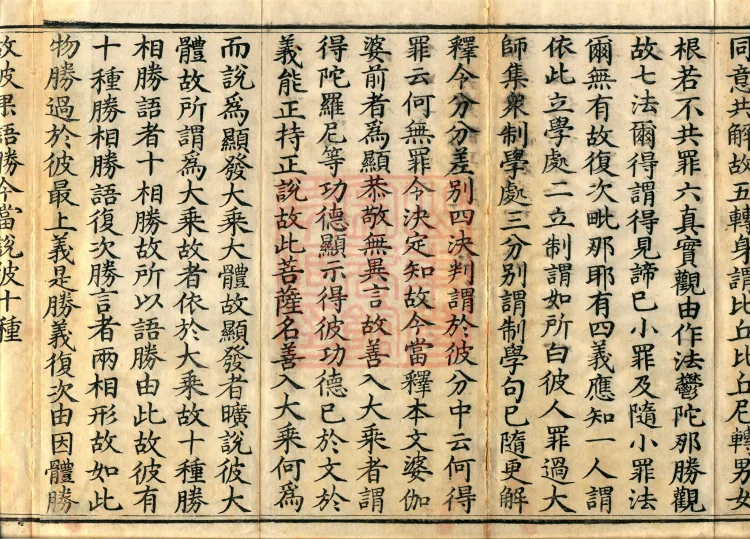 同意共解故五轉身謂比丘比丘尼轉男女
根若不共罪六真實觀由作法鬱陀那勝觀
故七法爾得謂得見諦已小罪及隨小罪法
爾無有故復次毗那耶有四義應知一人謂
依此立學處二立制謂如所白彼人罪過大
師集衆制學處三分別謂制學句已隨更解
釋令分分差別四決判謂於彼分中云何得
罪云何無罪令決定知故今當釋本文婆伽
婆前者為顯恭敬無異言故善入大乘者謂
得陀羅尼等功德顯示得彼功德已於文於
義能正持正說故此菩薩名善入大乘何為
而說為顯發大乘大體故顯發者曠說彼大
體故所謂為大乘故者依於大乘故十種勝
相勝語者十相勝故所以語勝由此故彼有
十種勝相勝語復次勝言者兩相形故如此
物勝過於彼最上義是勝義復次由因體勝
故彼果語勝今當說彼十種